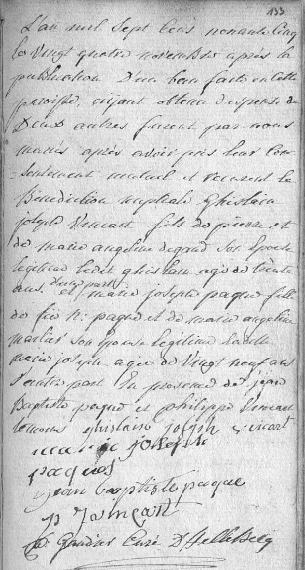 133
L'an mil Sept Cens nonante Cinq
le Vingt quatre novembre après la
publication D'un ban faite en Cette
paroisse, ayant obtenu dispense de
Deux autres furent par nous
mariés après avoir pris leur Con-
sentement mutuel et reçurent la
Bénédiction nuptiale Ghislain
joseph Vincart fils de pierre et
de marie angeline degand Son Epouse
legitime ledit ghislain agé de trente
ans d'une part et marie josephe paque fille
de feu N: paque et de marie angeline
Son Epouse legitime ladite
marie joseph agée de Vingt neuf ans
d'autre part En presence de jean
Baptiste paque et philippe Vincart
temoins ghislain joseph Vincart
marie joseph
paques
jean baptiste paque
p Vaincart
Curé D'Ellebecq